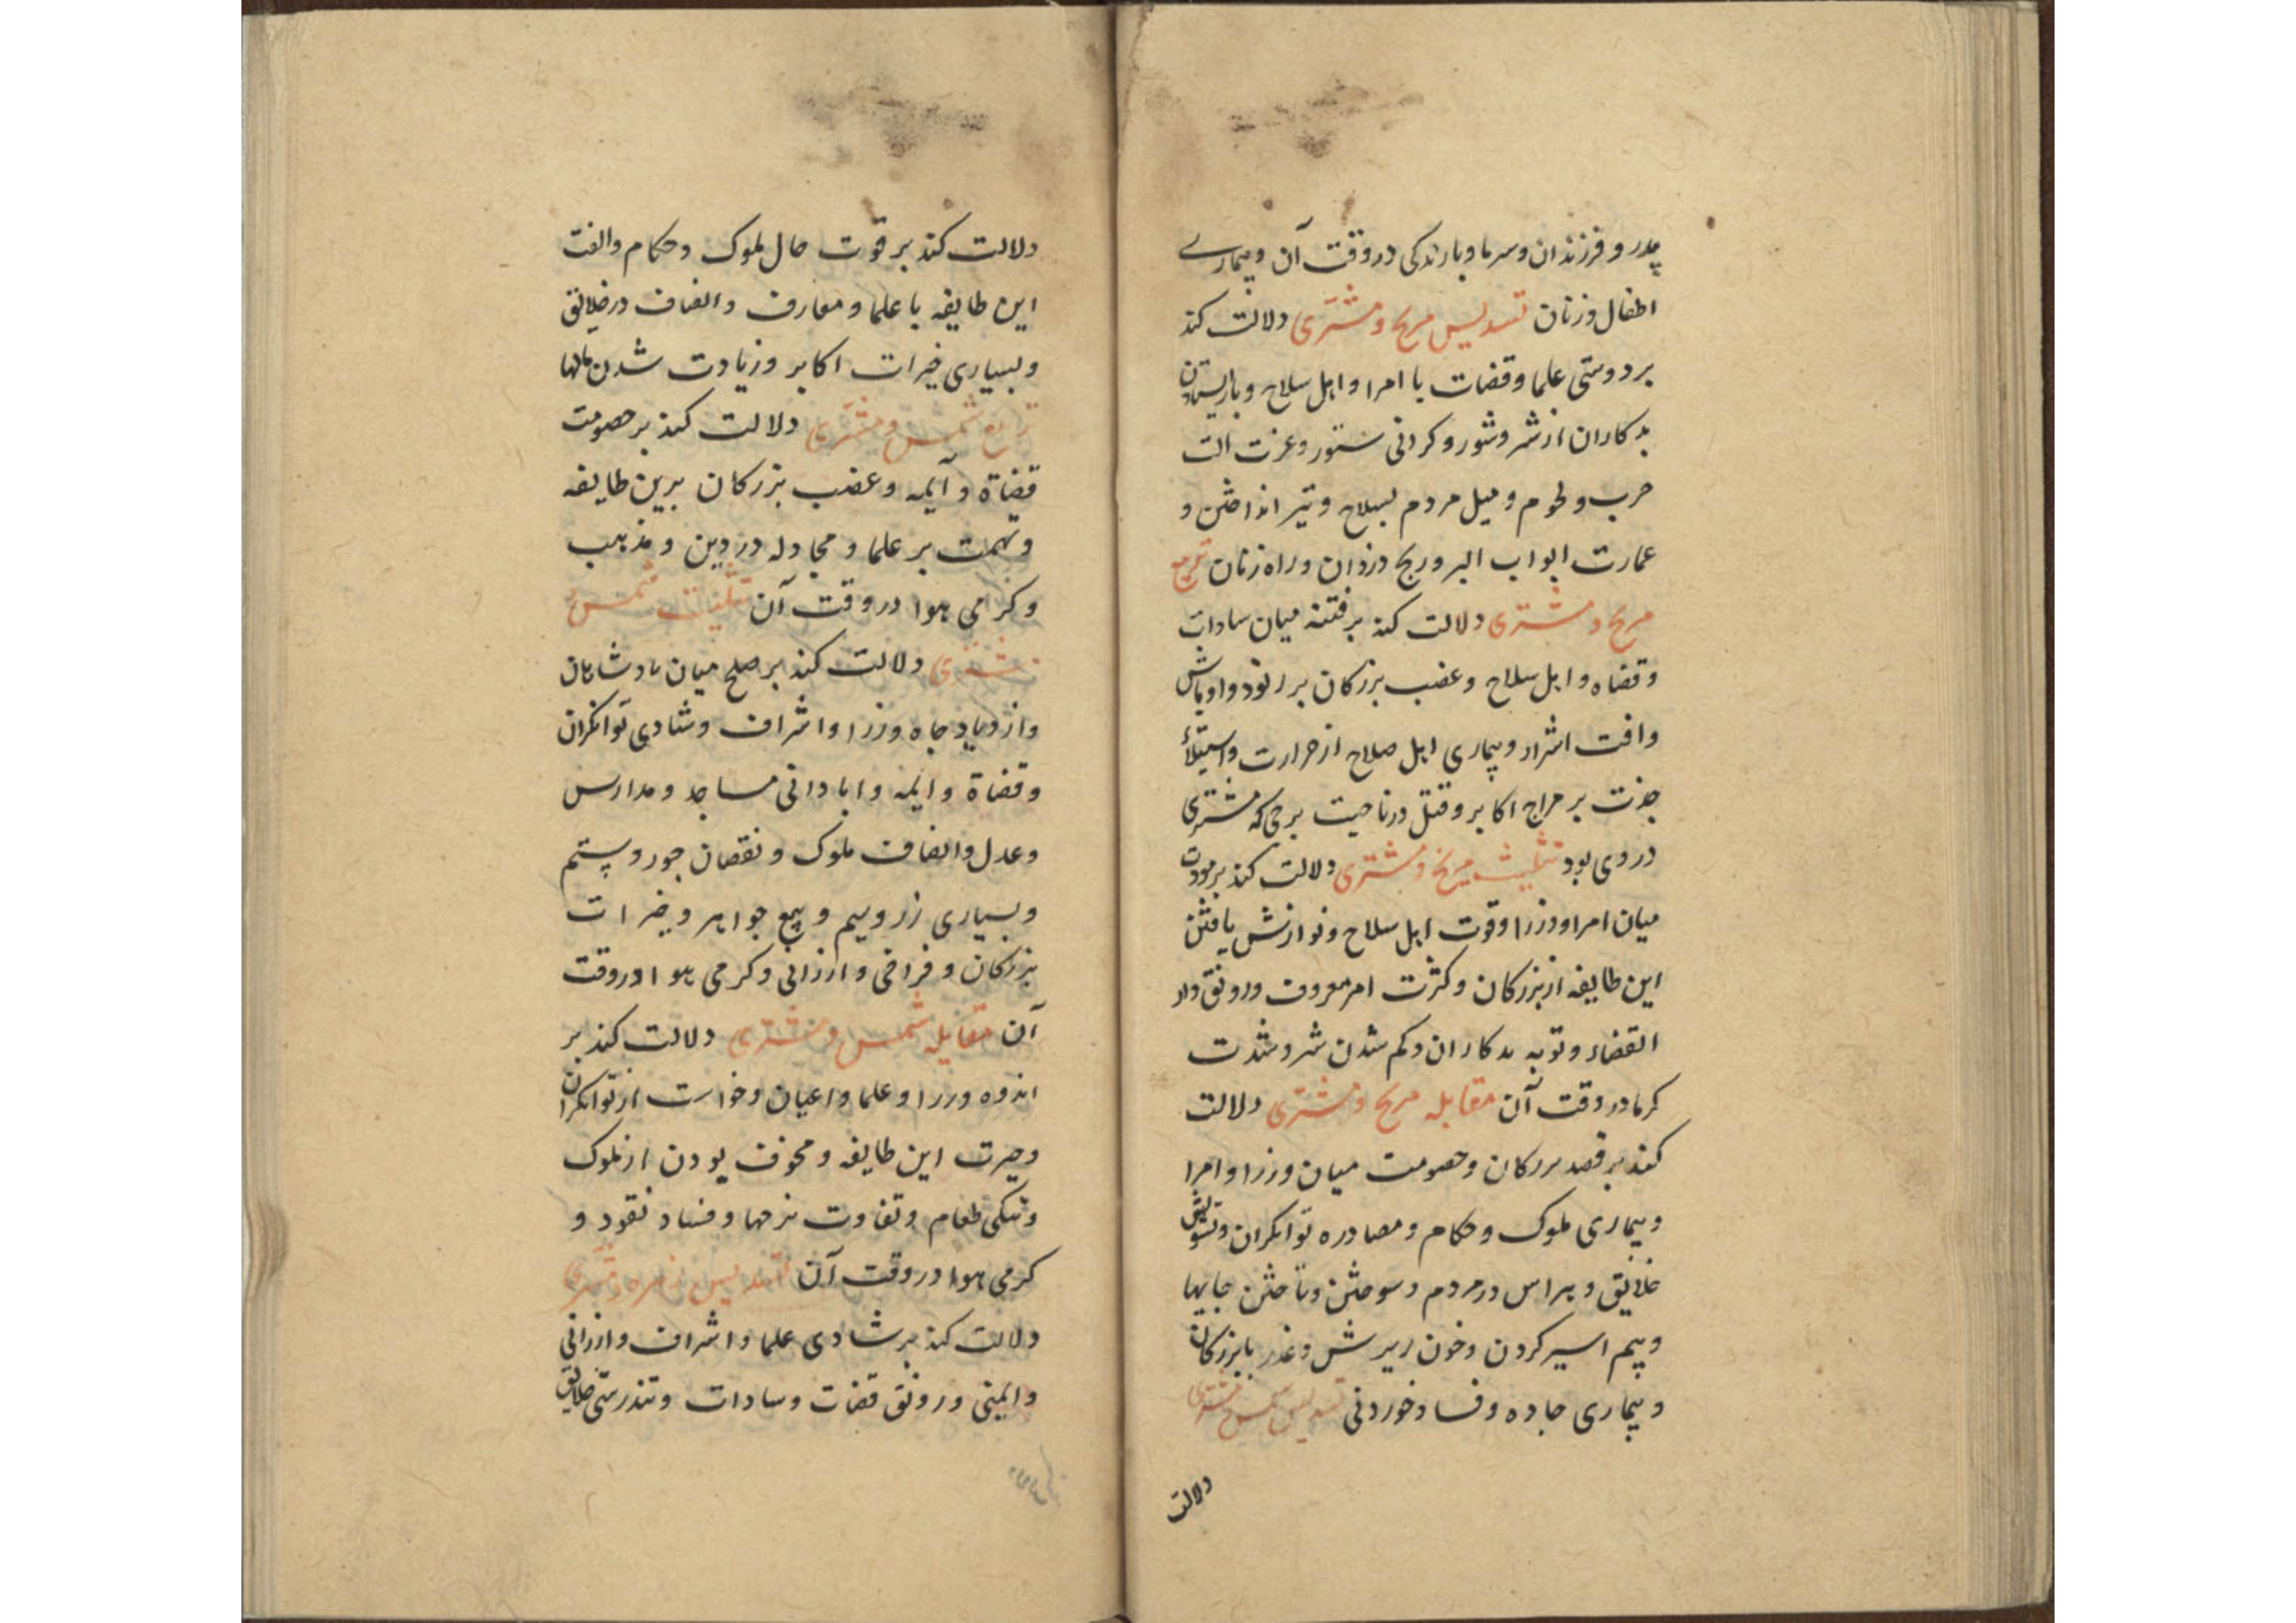 پدر و فرزندان و سرما و بارندکی در وقت آن و بیماری
اطفال و زنان تسدیس مریخ و مشتری دلالت کند
بر دوستی علما و قضات با امرا و اهل سلاح و بازایستادن
بدکاران از شر و شور و کرانی ستور و عزت الت
حرب و لحوم و میل مردم بسلاح و تیر انداختن و
عمارت ابواب البر و رنج دزدان و راه زنان تربیع
مریخ و مشتری دلالت کند بر فتنه میان سادات
و قضاه و اهل سلاح و غضب بزرکان بر رنود و اوباش
و افت اشرار و بیماری اهل صلاح از حرارت و استیلاء
بر مزاج اکابر و قتل در ناحیت برجی که مشتری
در وی بود تثلیث مریخ و مشتری دلالت کند بر مودت
میان امرا و وزرا و قوت اهل سلاح و نوازش یافتن
این طایفه از بزرکان و کثرت امر معروف و رونق دار
القضاء و توبه بدکاران و کم شدن شر و شدت
کرما در وقت آن مقابله مریخ و مشتری دلالت
کند بر قصد بزرکان و خصومت میان وزرا و امرا
و بیماری ملوک و حکام و مصادره توانکران و تشویش
خلایق و هراس در مردم و سوختن و تاختن جایها
و بیم اسیر کردن و خون ریزش و غدر با بزرکان
و بیماری حاده و فساد خوردنی تسدیس شمس و مشتری
دلالت
دلالت کند بر قوت حال ملوک و حکام و الفت
این طایفه با علما و معارف و انصاف در خلایق
و بسیاری خیرات اکابر و زیادت شدن مالها
تربیع شمس و مشتری دلالت کند بر خصومت
قضاة و آیمه و غضب بزرکان برین طایفه
و تهمت بر علما و مجادله در دین و مذهب
و کرمی هوا در وقت آن تثلیث شمس و
مشتری دلالت کند بر صلح میان پادشاهان
و ازدیاد جاه وزرا و اشراف و شادی توانکران
و قضاة و ایمه و ابادانی مساجد و مدارس
و عدل و انصاف ملوک و نقصان جور و ستم
و بسیاری زر و سیم و بیع جواهر و خیرات
بزرکان و فراخی و ارزانی و کرمی هوا در وقت
آن مقابله شمس و مشتری دلالت کند بر
اندوه وزرا و علما و اعیان و خواست از توانکران
و حیرت این طایفه و مخوف بودن از ملوک
و تنکی طعام و تفاوت نرخها و فساد نقود و
کرمی هوا در وقت آن تسدیس زهره و مشتری
دلالت کند بر شادی علما و اشراف و ارزانی
و ایمنی و رونق قضات و سادات و تندرستی خلایق